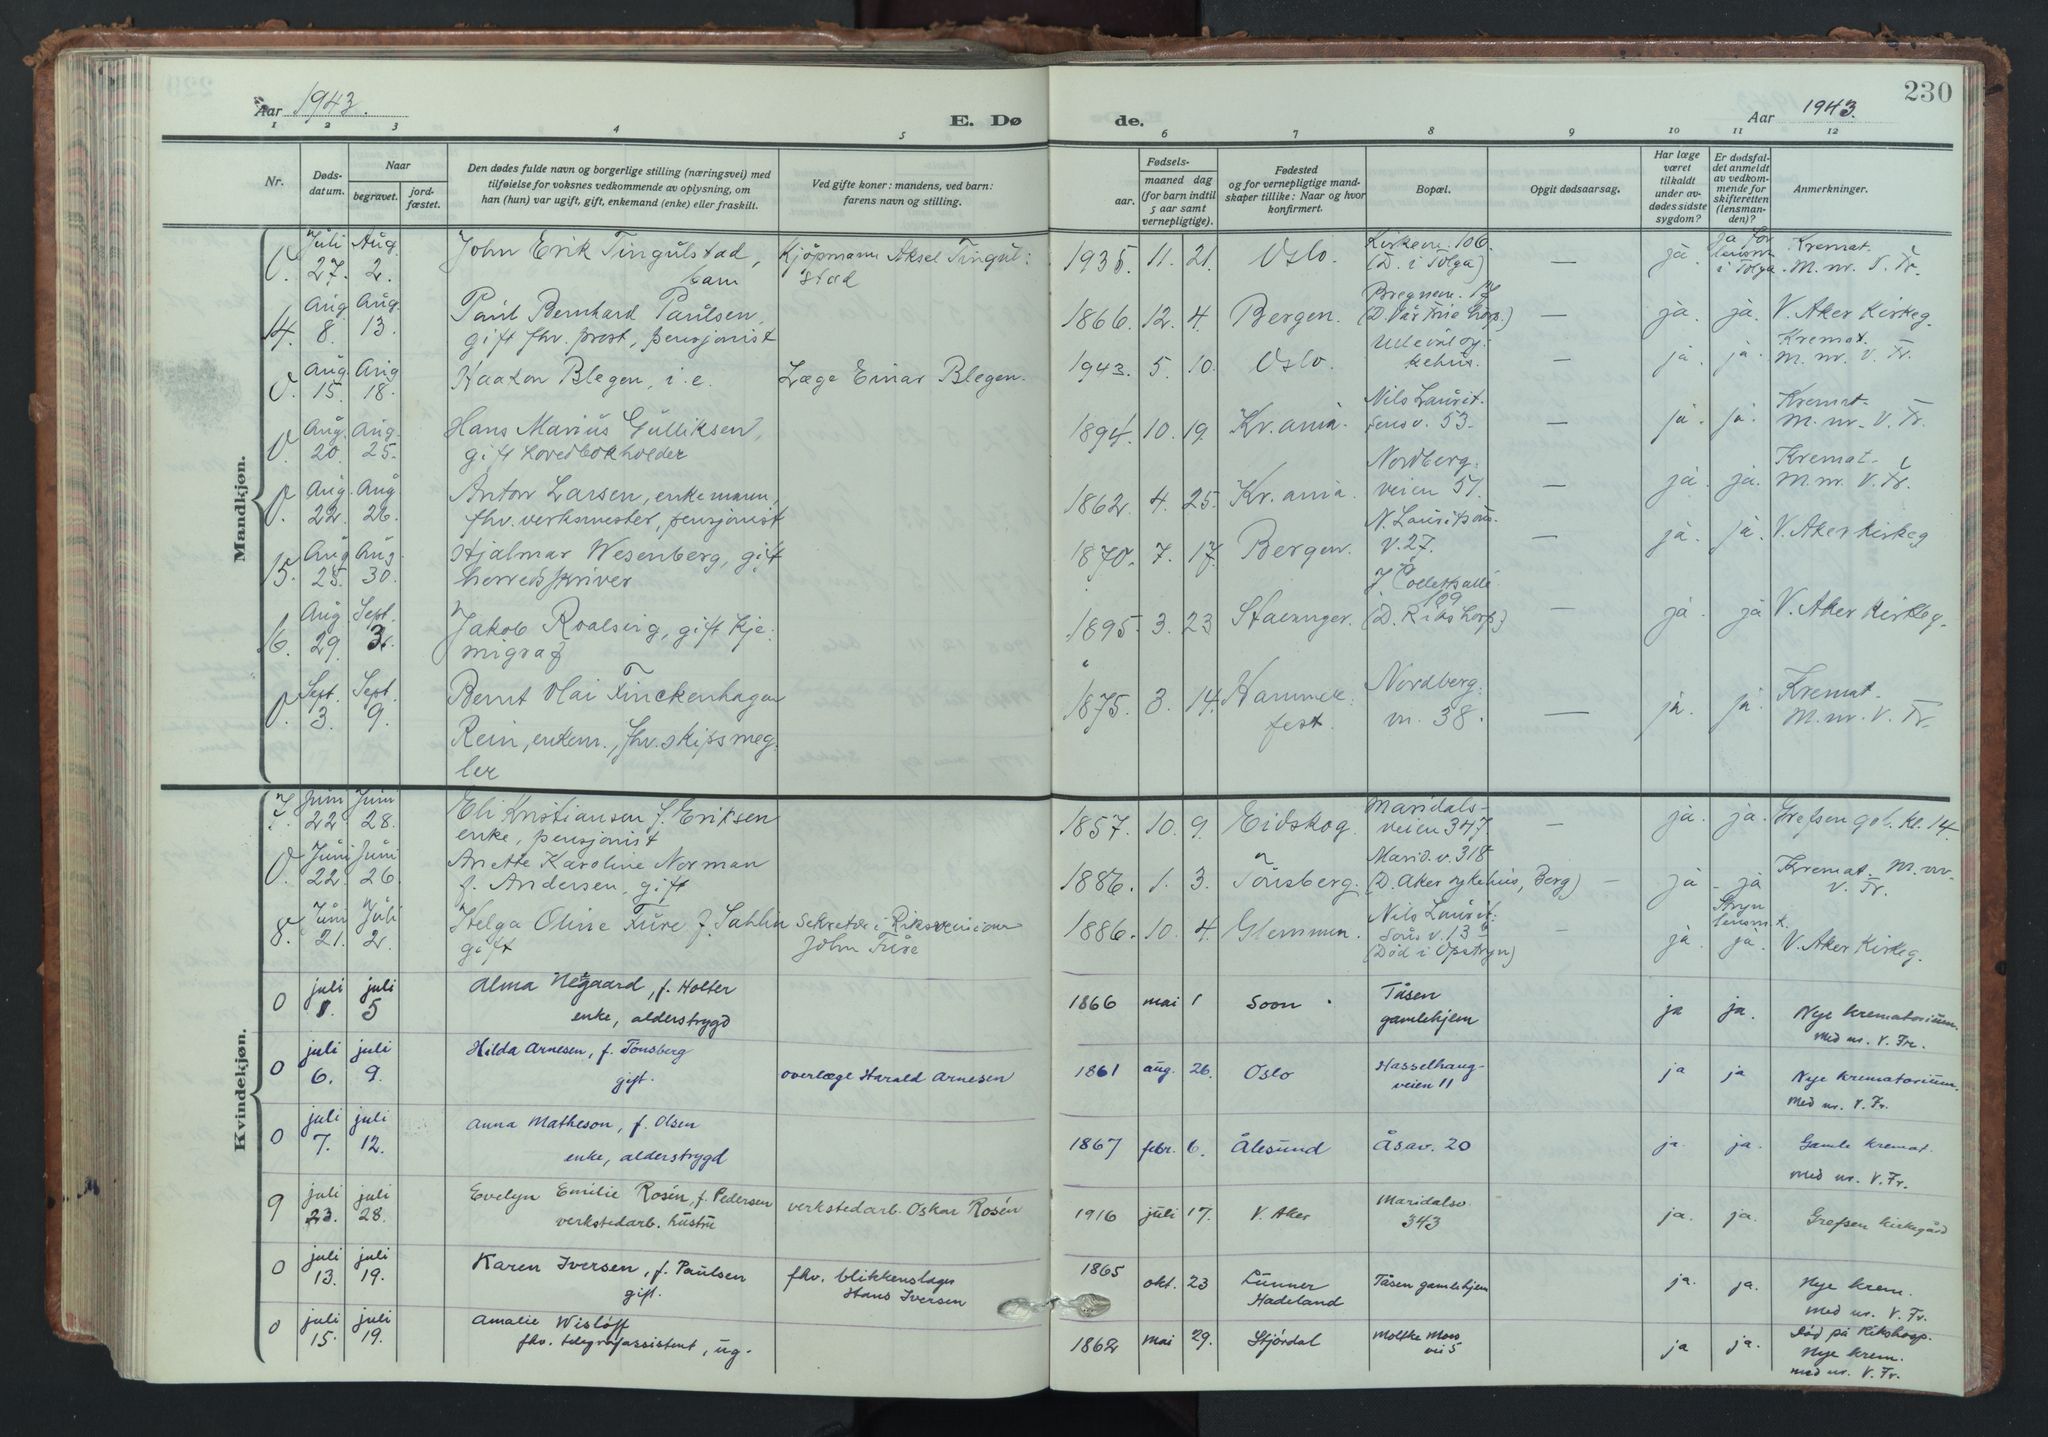 Aar 1943.
E. Dø
de.
Aar 1943.
230
1 2 3 4 5 6 7 8 9 10 11 12
Nr.
Døds-
datum.
Naar
begravet.
jord-
fæstet.
Den dødes fulde navn og borgerlige stilling (næringsvei) med
tilføielse for voksnes vedkommende av oplysning, om
han (hun) var ugift, gift, enkemand (enke) eller fraskilt.
Ved gifte koner: mandens, ved barn:
farens navn og stilling.
Fødsels-
aar.
maaned dag
(for barn indtil
5 aar samt
vernepligtige).
Fødested
og for vernepligtige mand-
skaper tillike: Naar og hvor
konfirmert.
Bopæl.
Opgit dødsaarsag.
Har læge
været
tilkaldt
under av-
dødes sidste
sygdom?
Er dødsfal-
det anmeldt
av vedkom-
mende for
skifteretten
(lensman-
den)?
Anmerkninger.
Mandkjøn.
0. Juli 27. Aug. 2. John Erik Tingulstad, Kjøpmann Aksel Tingul-
barn stad
1935. 11. 21. Oslo. Kirkevn. 106.
(D. i Tolga) — ja. ja for
lensm.
i Tolga. Kremat.
M. nr. V. Fr.
14. Aug. 8. Aug. 13. Paul Bernhard Paulsen,
gift fhv. prest, pensjonist
1866. 12. 4. Bergen. Bregnevn. 17
(D. Vår Frue hosp.) — ja. ja. V. Aker Kirkeg.
0. Aug. 15. Aug. 18. Haakon Blegen, i.e. Læge Einar Blegen.
1943. 5. 10. Oslo. Ullevål sy-
kehus. — ja. ja. Kremat.
M. nr. V. Fr.
0. Aug. 20. Aug. 25. Hans Marius Gulliksen,
gift hovedbokholder
1894. 10. 19. Kr.ania. Nils Laurit-
sens v. 53. — ja. ja. Kremat.
M. nr. V. Fr.
0. Aug. 22. Aug. 26. Anton Larsen, enkemann,
fhv. verksmester, pensjonist
1862. 4. 25. Kr.ania. Nordberg-
veien 51. — ja. ja. Kremat.
M. nr. V. Fr.
15. Aug. 25. Aug. 30. Hjalmar Wesenberg, gift
herredsskriver
1870. 7. 17. Bergen. N. Lauritsøns
v. 27. — ja. ja. V. Aker Kirkeg
16. Aug. 29. Sept. 3. Jakob Roalsvig, gift kje-
migraf
1895. 3. 23 Stavanger. J. Colletsallé
109
(D. Rikshosp.) — ja. ja V. Aker Kirkeg.
0. Sept. 3. Sept. 9. Bernt Olai Finckenhagen
Rein, enkem., fhv. skipsmeg
ler
1875. 3. 14. Hammer-
fest. Nordberg-
vn. 38. — ja. ja. Kremat.
M. nr. V. Fr.
Kvindekjøn.
7. Juni 22 Juni 28. Eli Kristiansen f. Eriksen
enke, pensjonist
1857. 10. 9. Eidskog. Maridals-
veien 347. — ja. ja. Grefsen gbl. kl. 14
0. Juni 22. Juni 26. Anette Karoline Norman
f. Andersen, gift
1886. 1. 3. Tønsberg. Marid.v. 318
(D. Aker sykehus, Berg) — ja - ja Kremat. M. nr.
V. Fr.
8. Juni 21. Juli 2. Helga Oline Fure f. Sahlin Sekretær i Riksrevisionen
gift John Fure
1886. 10. 4. Glemmen. Nils Laurit-
søns v. 13 b
(Død i Opstryn) — ja. Stryn
lensm.k.
ja. V. Aker Kirkeg.
0 juli 1. juli 5 Alma Negaard, f. Holter
enke, alderstrygd
1866 mai 1 Soon Tåsen
gamlehjem ja ja. Nye krematorium.
Med nr. V. Fr.
0 juli 6. juli 9. Hilda Arnesen, f. Tønsberg
gift. overlæge Harald Arnesen
1861 aug. 26. Oslo Hasselhaug-
veien 11 ja ja Nye krematorium.
Med nr. V. Fr.
0 juli 7. juli 12. Anna Matheson, f. Olsen
enke, alderstrygd
1867 febr. 6. Ålesund Åsav. 20 ja. ja. Gamle kremat.
med nr. V. Fr.
9 juli 23. juli 28. Evelyn Emilie Rosén, f. Pedersen verkstedarb. Oskar Rosén
verkstedarb. hustru
1916 juli 17. V. Aker Maridalsv
343 ja. ja. Grefsen kirkegård
0 juli 13. juli 19. Karen Iversen, f. Paulsen fhv. blikkenslager
gift. Hans Iversen
1865 okt. 23 Lunner
Hadeland Tåsen gamlehjem ja. ja. Nye krem.
med nr. V. Fr.
0 juli 15. juli 19. Amalie Wisløff
fhv. telegrafassistent, ug.
1862 mai 29. Stjørdal Moltke Moes
vei 5 ja ja. Død på Rikshosp.
Nye krem.
med nr. V. Fr.